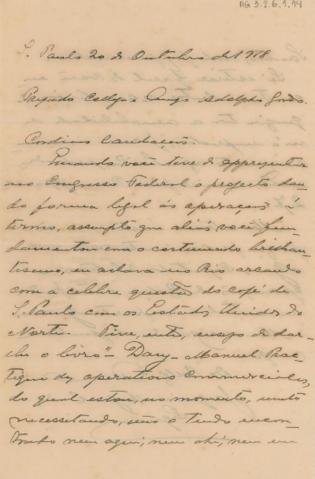 AG 3.2.6.1.94
S. Paulo 20 de Outubro de 1918
Prezado Collega e Amigo Adolpho Gordo.
Cordiaes saudações.
Quando você teve de appresentar
no Congresso Federal o projecto dan
do forma legal ás operações á
termo, assumpto que aliás você fun
damentou com o costumado brilhan
tismo, eu estava no Rio
com a celebre questão do café de
S. Paulo com os Estados Unidos do
Norte. Tive, então, ensejo de dar-
lhe o livro "Dany - Manuel Prac
tique des operations Commerciales,
do qual estou, no momento, muito
necessitando, não o tendo encon
trado nem aqui, nem ahi, nem em